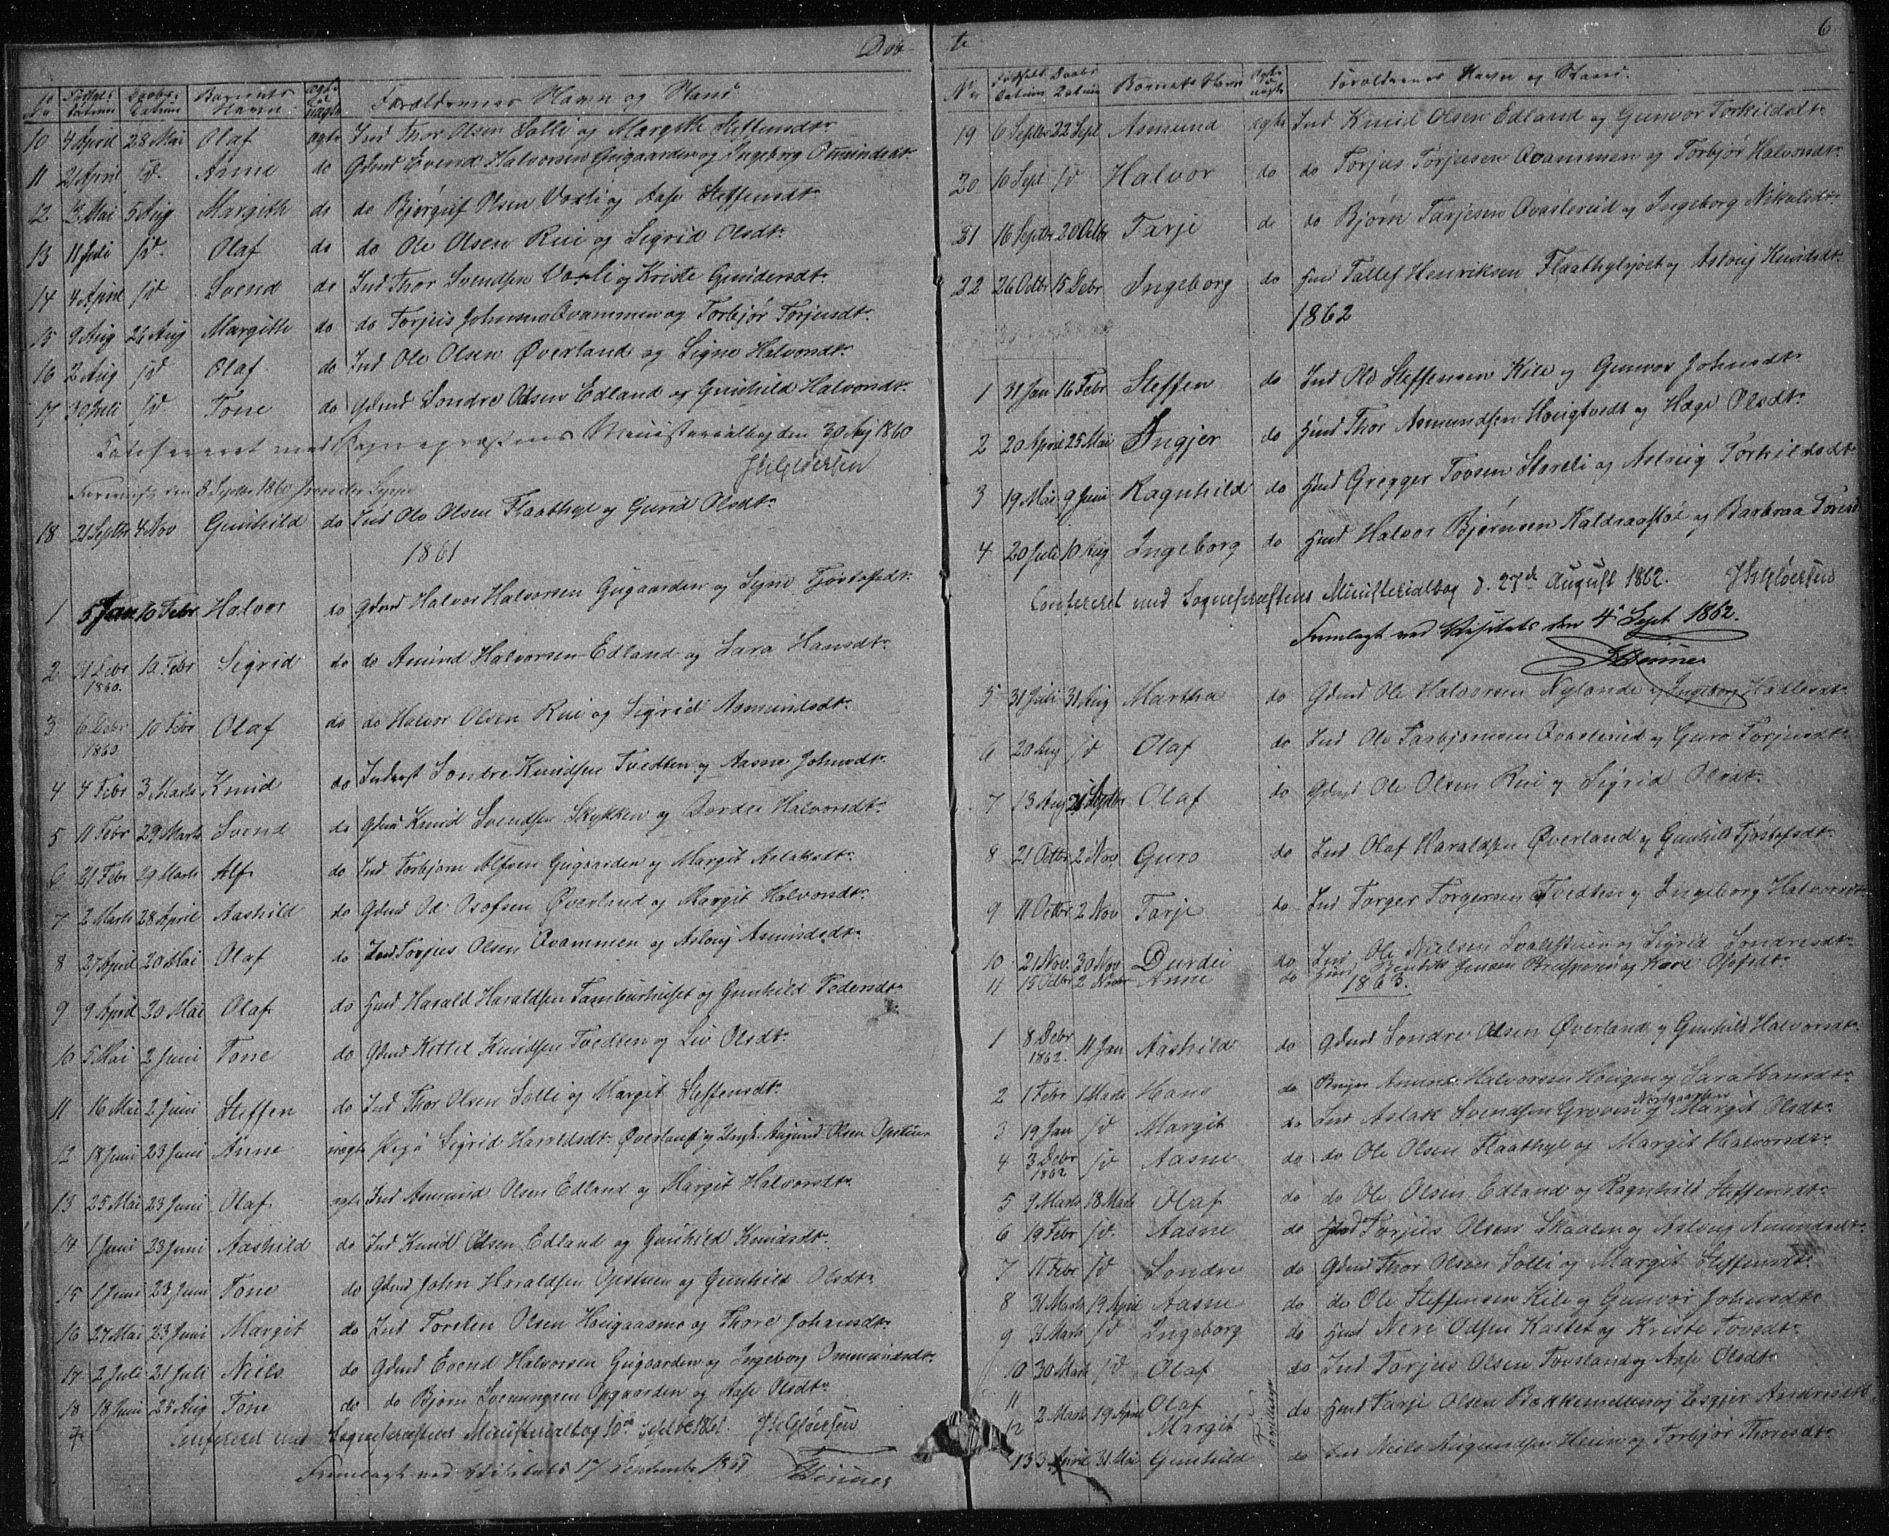 Døb-
No Fødsels Datum Daabs Datum Barnets Navn ægte eller uægte Forældrenes Navn og Stand
10 4 April 28 Mai Olaf ægte Ind Thor Olsen Solli og Margith Steffensdtr
11 21 April sd. Anne do Gbmd Evend Halvorsen Guigaarden og Ingeborg Omundsdtr
12 3 Mai 5 Aug Margith do do Bjørguf Olsen Vaxli og Aase Steffensdtr
13 11 Juli sd. Olaf do do Ole Olsen Rui og Sigrid Olsdtr
14 4 April sd Svend do Ind Thor Svendsen Vaxli og Kriste Gundersdtr
15 9 Aug 26 Aug Margith do do Torjus Johnsen Qvammen og Torbjør Torjusdtr
16 2 Aug sd Olaf do Ind Ole Olsen Øverland og Signe Halvorsdtr
17 30 Juli sd Tone do Gbmd Sondre Olsen Edland og Gunhild Halvorsdtr
Confereret med Sognepræstens Ministerialbog den 30 Aug 1860
den 8 Septbr 1860
18 21 Septbr 4 Nov Gunhild do Ind Ole Olsen Flaathyl og Gunid Olsdtr
1861
1 5 Jan 10 Febr Halvor do Gbmd Halvor Halvorsen Guigaarden og Signe Tjøstofsdtr
2 Debr 1860. 10 Febr Sigrid do do Amund Halvorsen Edland og Sara Hansdtr
3 6 Debr 1860 10 Febr Olaf do do Halvor Olsen Rui og Sigrid Asmundsdtr
4 4 Febr 3 Marts Knud do Inderst Sondre Knudsen Tvedten og Aasne Johnsdtr
5 11 Febr 29 Marts Svend do Gbmd Knud Svendsen Skykken og Dordei Halvorsdtr
6 21 Febr 29 Marts Alf do Ind Torbjørn Alfsen Guigaarden og Margit Aslaksdtr
7 2 Marts 28 April Aashild do Gbmd Od Olofsen Øverland og Margit Halvorsdtr
8 27 April 20 Mai Olaf do Ind Torjus Olsen Qvammen og Asloug Asmundsdtr
9 9 April 20 Mai Olaf do Hmd Harald Haraldsen Tamburhuset og Gunhild Pedersdtr
10 5 Mai 2 Juni Tone do Gbmd Kettel Knudsen Tvedten og Liv Olsdtr
11 16 Mai 2 Juni Steffen do Ind Thor Olsen Solli og Margit Steffensdtr
12 18 Juni 23 Juni Anne uægte Pige Sigrid Haroldsdtr Øverland og Ungk. Aasund Olsen Opstuen
13 25 Mai 23 Juni Olaf ægte Ind Asmund Olsen Edland og Margit Halvorsdtr
14 1 Juni 23 Juni Aashild do Ind Knud Odsen Edland og Gunhild Knudsdtr
15 1 Juni 23 Juni Tone do Gbmd John Haraldsen Opstuen og Gunhild Olsdtr
16 27 Mai 23 Juni Margit do Ind Torsten Olsen Hougaasme og Thore Johansdtr
17 2 Juli 21 Juli Niels do Gbmd Evend Halvorsen Guigaarden og Ingeborg Ommundsdtr
18 18 Juni 25 Aug Tone do do Bjørn Svenungsen Opgaarden og Aase Olsdtr
Confereret med Sognepræstens Ministerialbog 10de Septbr 1861
Fremlagt ved Visitats 17 September 1861
te 6
No Fødsels Datum Daabs Datum Barnets Navn Ægte e uægte Forældrenes Navn og Stand
19 6 Septbr 22 Sept Asmund ægte Ind Knud Olsen Edland og Gunvor Torkildsdtr
20 10 Sept sd Halvor do do Torjus Torjusen Qvammen og Torbjør Halvorsdtr
21 16 Septbr 20 Octbr Tarje do do Bjørn Tarjesen Qvasterud og Ingeborg Nikulsdtr
22 26 Octbr 15 Debr Ingeborg do Hmd Tallef Henriksen Flaathylsjoet og Asloug Knudsdtr
1862
1 31 Jan 16 Febr Steffen do Ind Ole Steffensen Kile og Gunvor Johnsdtr
2 20 April 25 Mai Ingjer do Hmd Thor Asmundsen Hougtvedt og Hæge Olsdtr
3 19 Mai 9 Juni Ragnhild do Hmd Gregger Tovsen Storeli og Asloug Torkildsdtr
4 20 Juli 10 Aug Ingeborg do Hmd Halvor Bjørnsen Kaldraastøl og Barbraa
Confereret med Sognepræstens Ministerialbog d. 27de August 1862.
Fremlagt ved Visitats den 4 Sept 1862.
5 31 Juli 31 Aug Martha do Gbmd Ole Halvorsen Nylande og Ingeborg
6 20 Aug sd Olaf do Ind Ole Torbjørnsen Qvasterud og Guro Torjusdtr
7 13 Aug 21 Septbr Olaf do Gbmd Ole Olsen Rui og Sigrid Olsdtr
8 21 Octbr 2 Nov Guro do Ind Olaf Haraldsen Øverland og Gunhild Tjøstofsdtr
9 11 Octbr 2 Nov Tarje do Ind Torger Torgersen Tvedten og Ingeborg Halvorsdtr
10 21 Nov. 30 Nov Durdei do Ind Ole Nielsen og Sigrid Sondresdtr
11 15 Octbr 2 Novbr Anne do Hmd Jensen og Kare
1863.
1 8 Debr 1862. 11 Jan Aashild do Gbmd Sondre Olsen Øverland og Gunhild Halvorsdtr
2 1 Febr 1 Marts Hans do Bruger Amund Halvorsen Hougen og Sara Hansdtr
3 19 Jan sd Margit do Ind Aslak Svendsen Groven Nordgaarden og Margit Olsdtr
4 3 Debr 1862 sd Aasne do do Ole Olsen Flaathyl og Margit Halvorsdtr
5 9 Marts 18 Marts Olaf do do Ole Olsen Edland og Ragnhild Steffensdtr
6 19 Febr sd. Aasne do Hmd Torjus Olsen Skaalen og Asloug Amundsdtr
7 11 Febr sd Sondre do Gbmd Thor Olsen Solli og Margit Steffensdtr
8 31 Marts 19 April Aasne do do Ole Steffensen Kile og Gunvor Johnsdtr
9 31 Marts sd Ingeborg do Hmd Neri Odsen Kastet og Kriste Tovsdtr
10 30 Marts sd Olaf do Ind Torjus Olsen Tovsland og Aase Olsdtr
11 Olaf
12 2 Marts 19 April Margit Tvillinge do Hmd Tarje Olsen Bakkemellem og Espjer
13 3 April 31 Mai Gunhild do Ind Niels Augundsen og Torbjør Thoresdtr